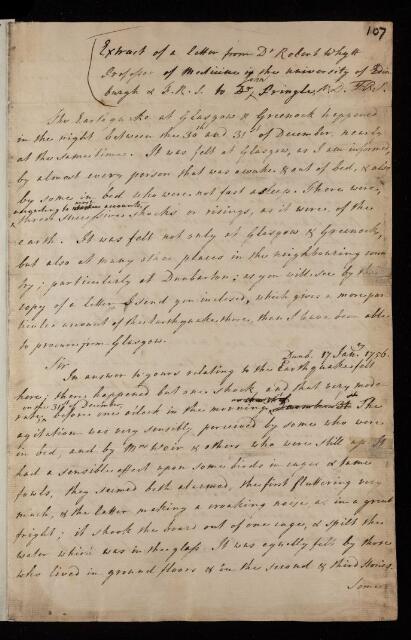 107
Extract of a letter from Dr Robert Whytt
Professor of Medicine in the university of Edin
burgh & F.R.S. to John Pringle M.D. F.R.S.
The Earthquake at Glasgow & Greenock happened
in the night between the 30th and 31st of December, nearly
at the same time. It was felt at Glasgow, as I am informed,
by almost every person that was awake & out of bed, & also
by some in bed who were not fast asleep. There were,
according to accounts,
three successive shocks or risings, as it were, of the
earth. It was felt not only at Glasgow & Greenock,
but also at many other places in the neighbouring coun
try; particularly at Dunbarton; as you will see by the
copy of a letter I send you inclosed, which gives a more par
ticular account of the Earthquake there, than I have been able
to procure from Glasgow.
Dunb. 17 Jan.ry 1756.
Sir
In answer to yours relating to the Earthquake felt
here; there happened but one shock, and that very mode
on the 31st of December
rate, before one o'clock in the morning, The
agitation was very sensibly perceived by some who were
in bed, and by Mrs Weir & others who were still up. It
had a sensible effect upon some birds in cages & tame
fowls, they seemed both alarmed, the first fluttering very
much, & the latter making a croaking noise as in a great
fright; it shook the board out of one cage, & spilt the
water which was in the glass. It was equally felt by those
who lived in ground floors & in the second & third stories.
Some